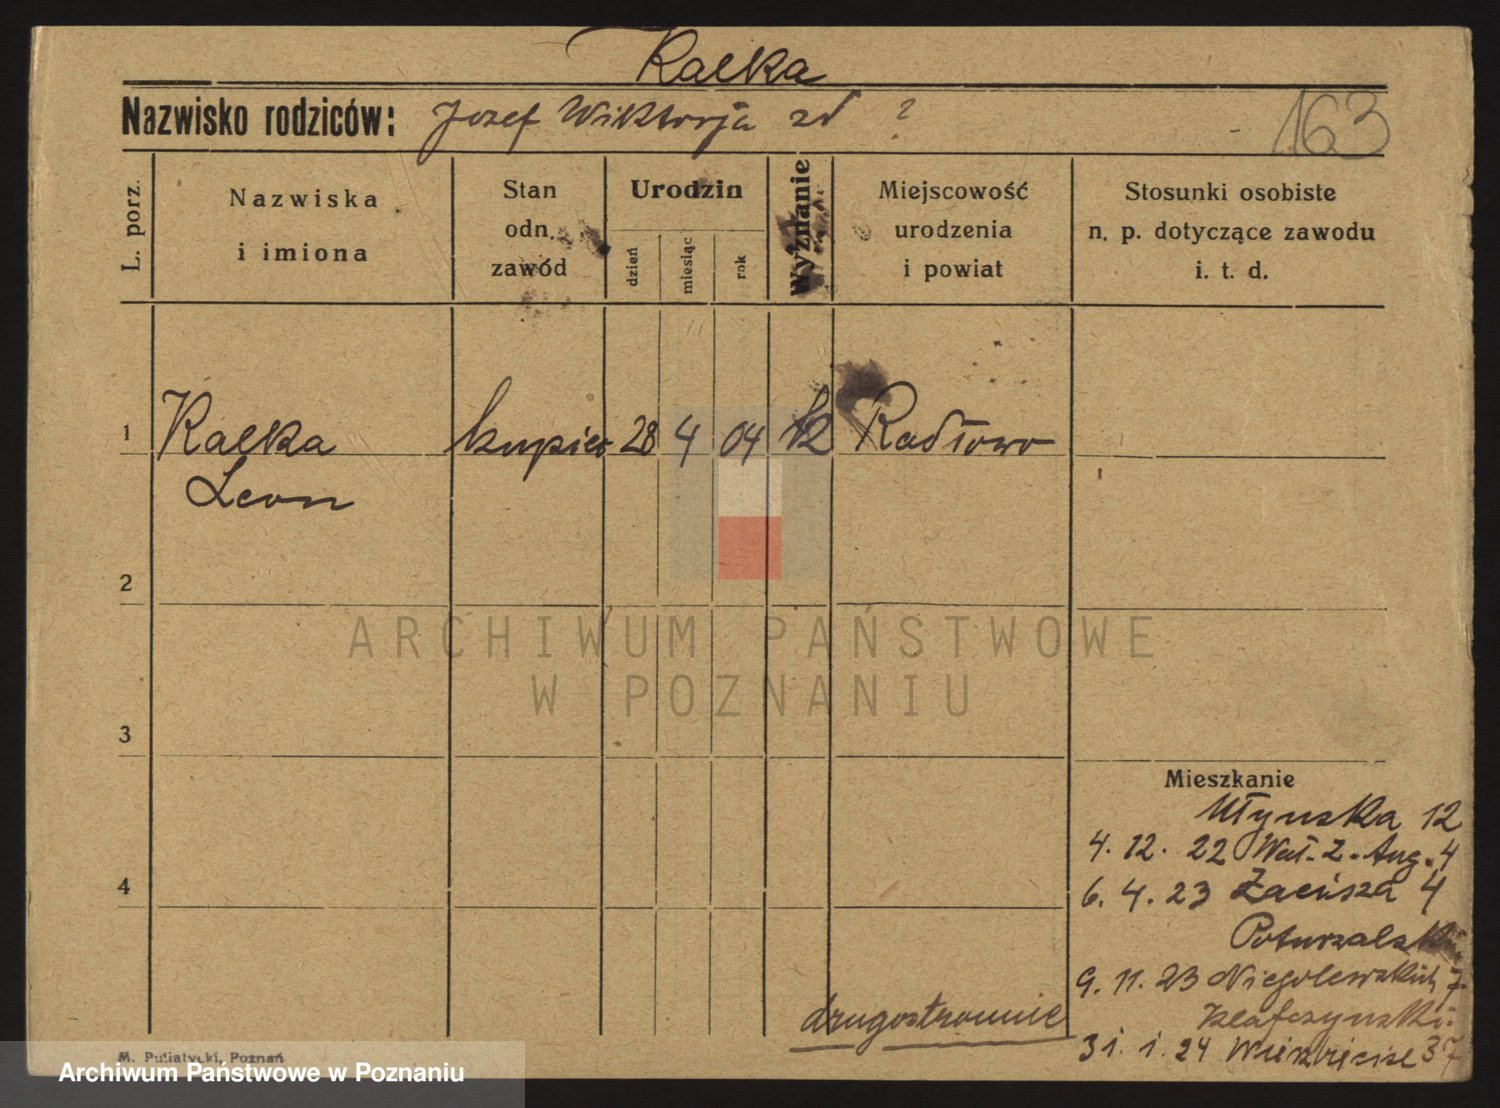 Kałka
Nazwisko rodziców: Jozef Wiktorja zd ?
163
L. porz.
Nazwiska
i imiona
Stan
odn.
zawód
Urodzin
dzień
miesiąc
rok
Wyznanie
Miejscowość
urodzenia
i powiat
Stosunki osobiste
n. p. dotyczące zawodu
i. t. d.
1 Kałka kupiec 28 4 04 kł Radłowo
Leon
2
3
4
Mieszkanie
Młyńska 12
4. 12. 22 Wał. Z. Aug. 4
6. 4. 23 Zacisza 4
9. 11. 23 Niegolewskich 7
31. 1. 24 37
drugostronnie
M. Putiatycki, Poznań
ARCHIWUM PAŃSTWOWE
W POZNANIU
Archiwum Państwowe w Poznaniu